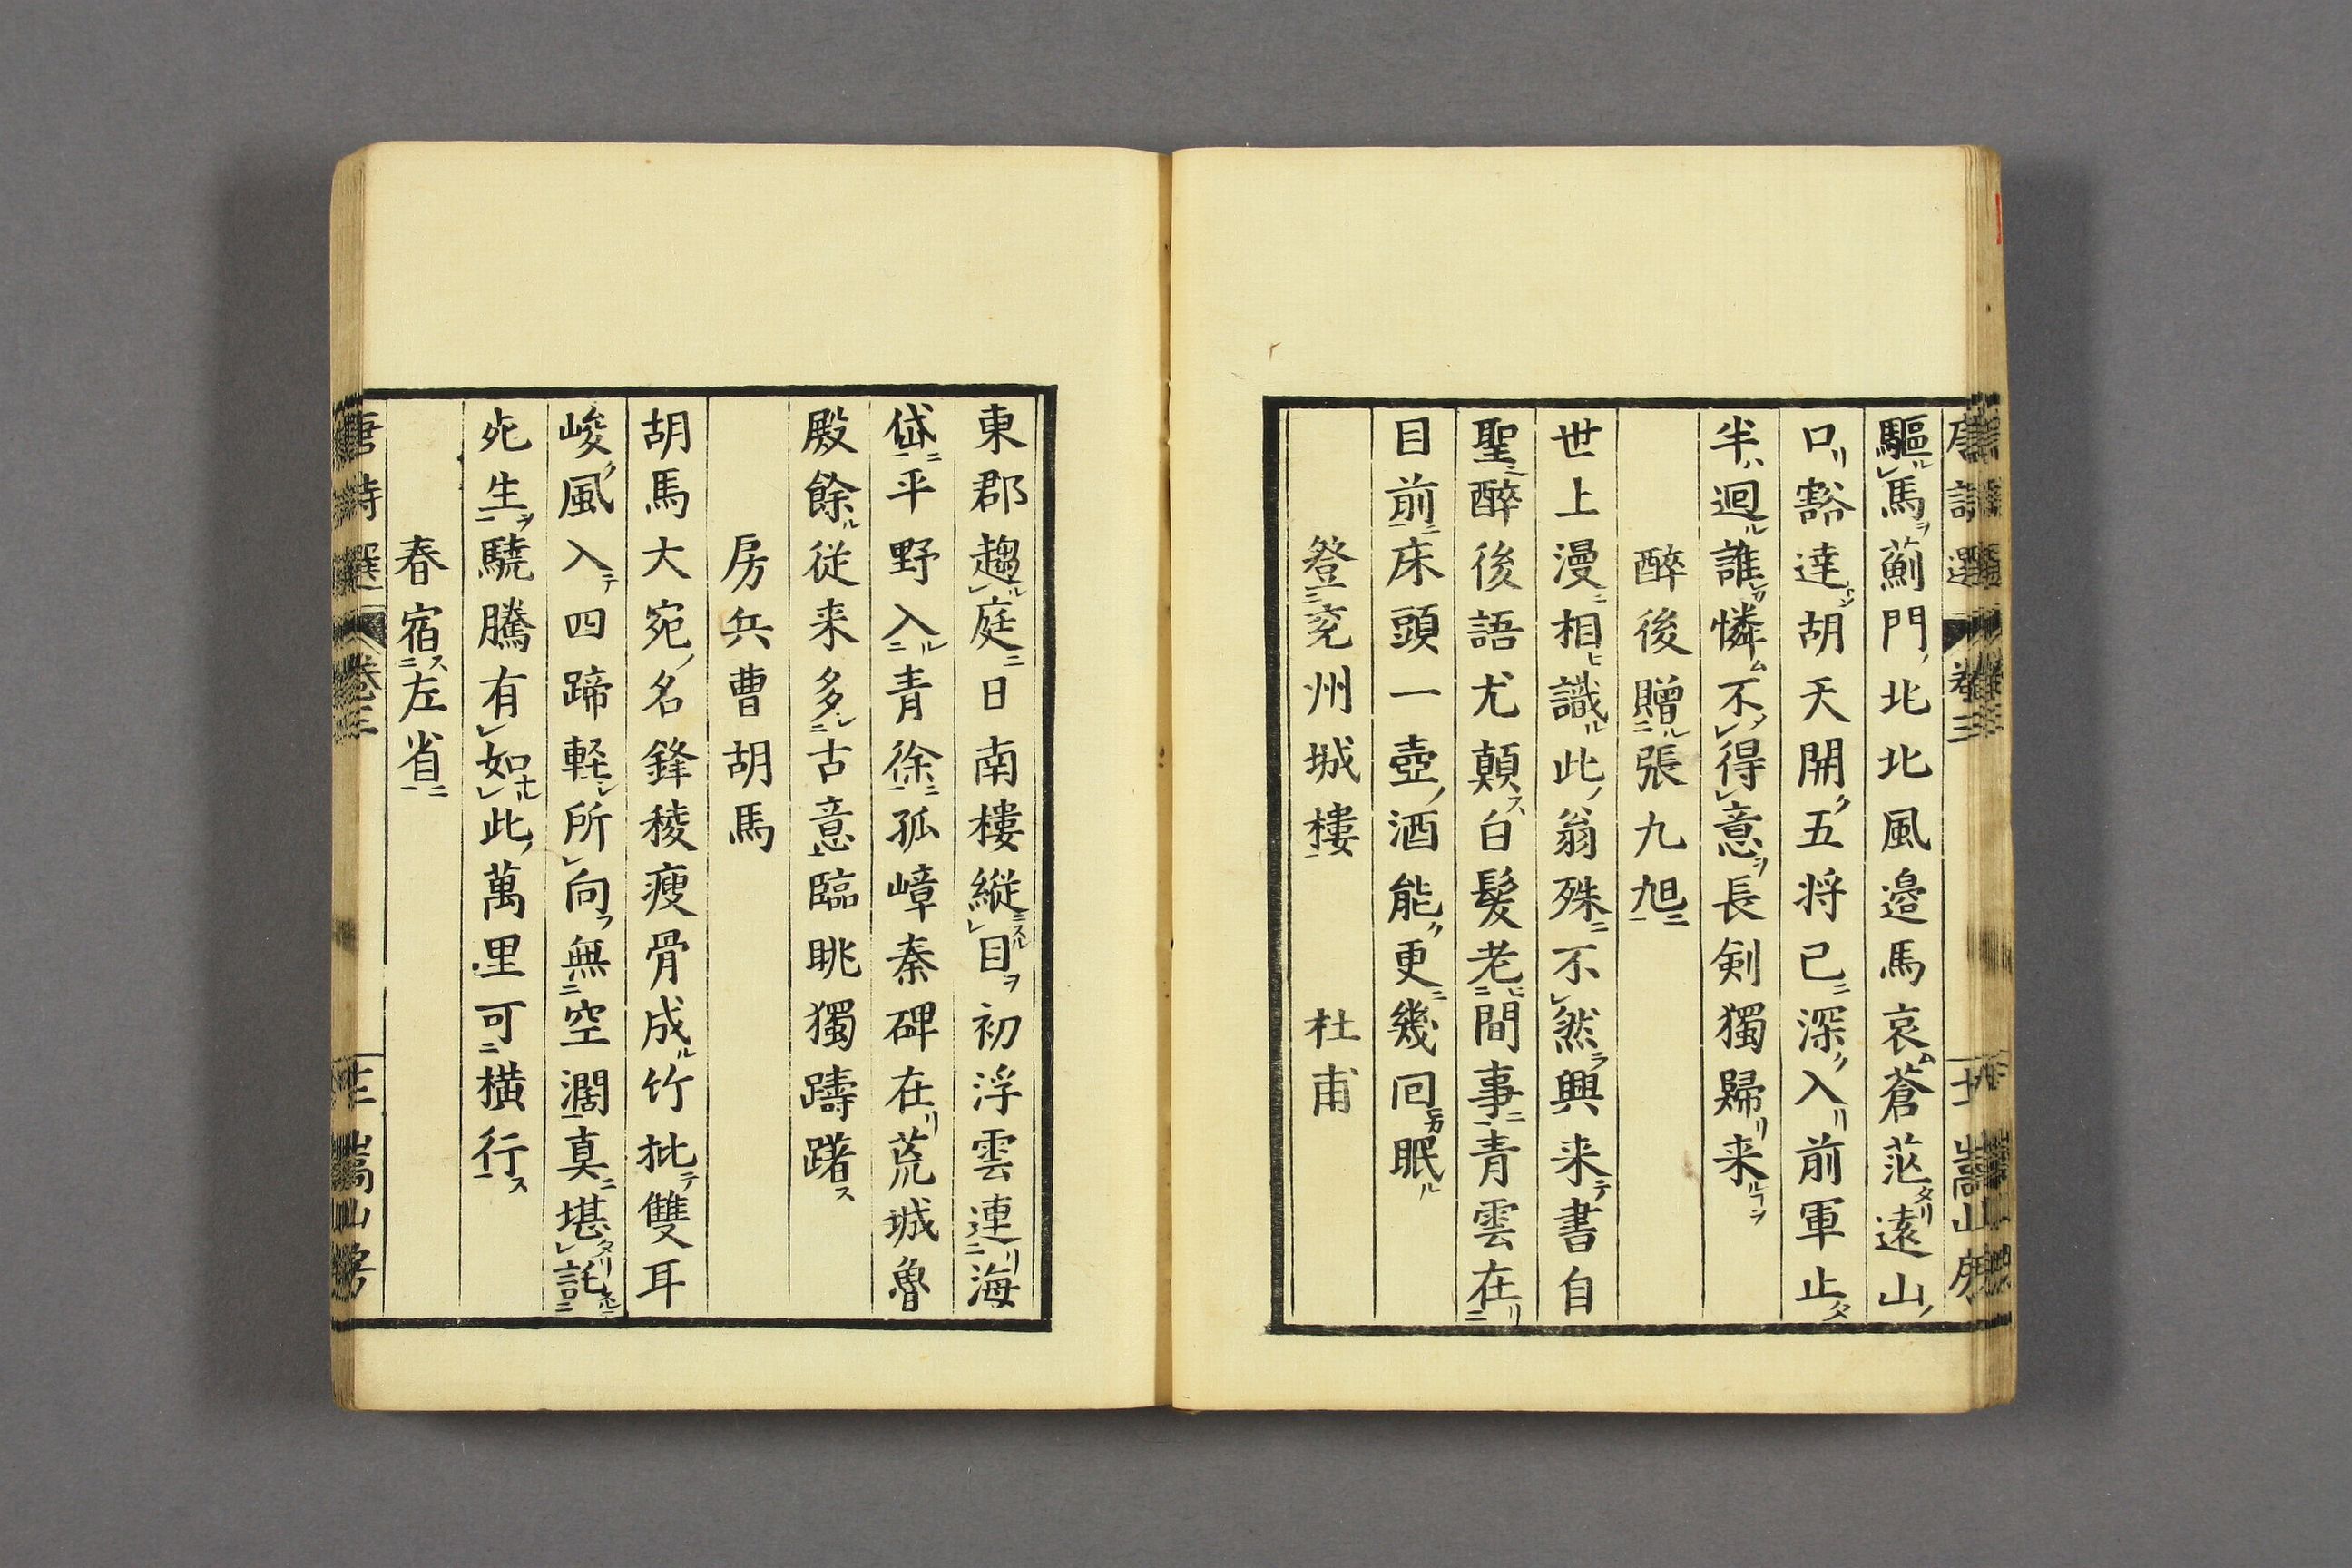 驅馬薊門北北風邊馬哀蒼茫遠山
口豁達胡天開五将已深入前軍止
半迴誰憐不得意長剣獨歸来
醉後贈張九旭
世上漫相識此翁殊不然興来書自
聖醉後語尤顛白髮老間事青雲在
目前床頭一壺酒能更幾回眠
登兖州城樓 杜甫
東郡趨庭日南樓縦目初浮雲連海
岱平野入青徐孤嶂秦碑在荒城魯
殿餘従来多古意臨眺獨躊躇
房兵曹胡馬
胡馬大宛名鋒稜瘦骨成竹批雙耳
峻風入四蹄軽所向無空濶真堪託
死生驍騰有如此萬里可横行
春宿左省
唐詩選 卷三 嵩山房